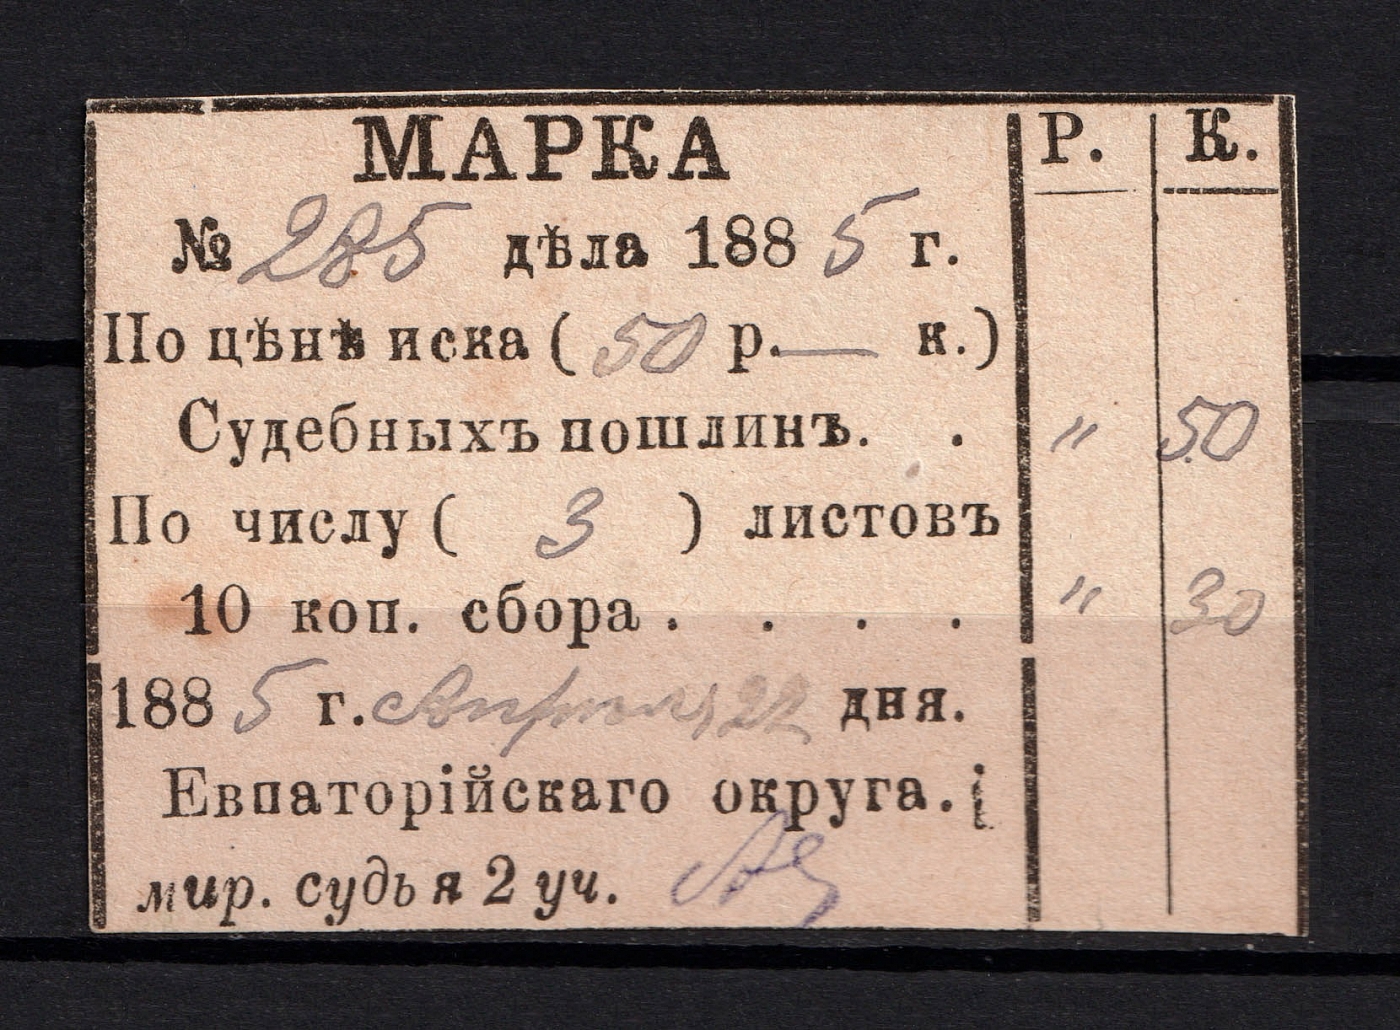 МАРКА Р. К.
№ 285 дѣла 1885 г.
По цѣнѣ иска ( 50 р. — к.)
Судебныхъ пошлинъ. . " 50
По числу ( 3 ) листовъ
10 коп. сбора . . . . " 30
1885 г. Апрѣля 22 дня.
Евпаторійскаго округа.
мир. судья 2 уч.